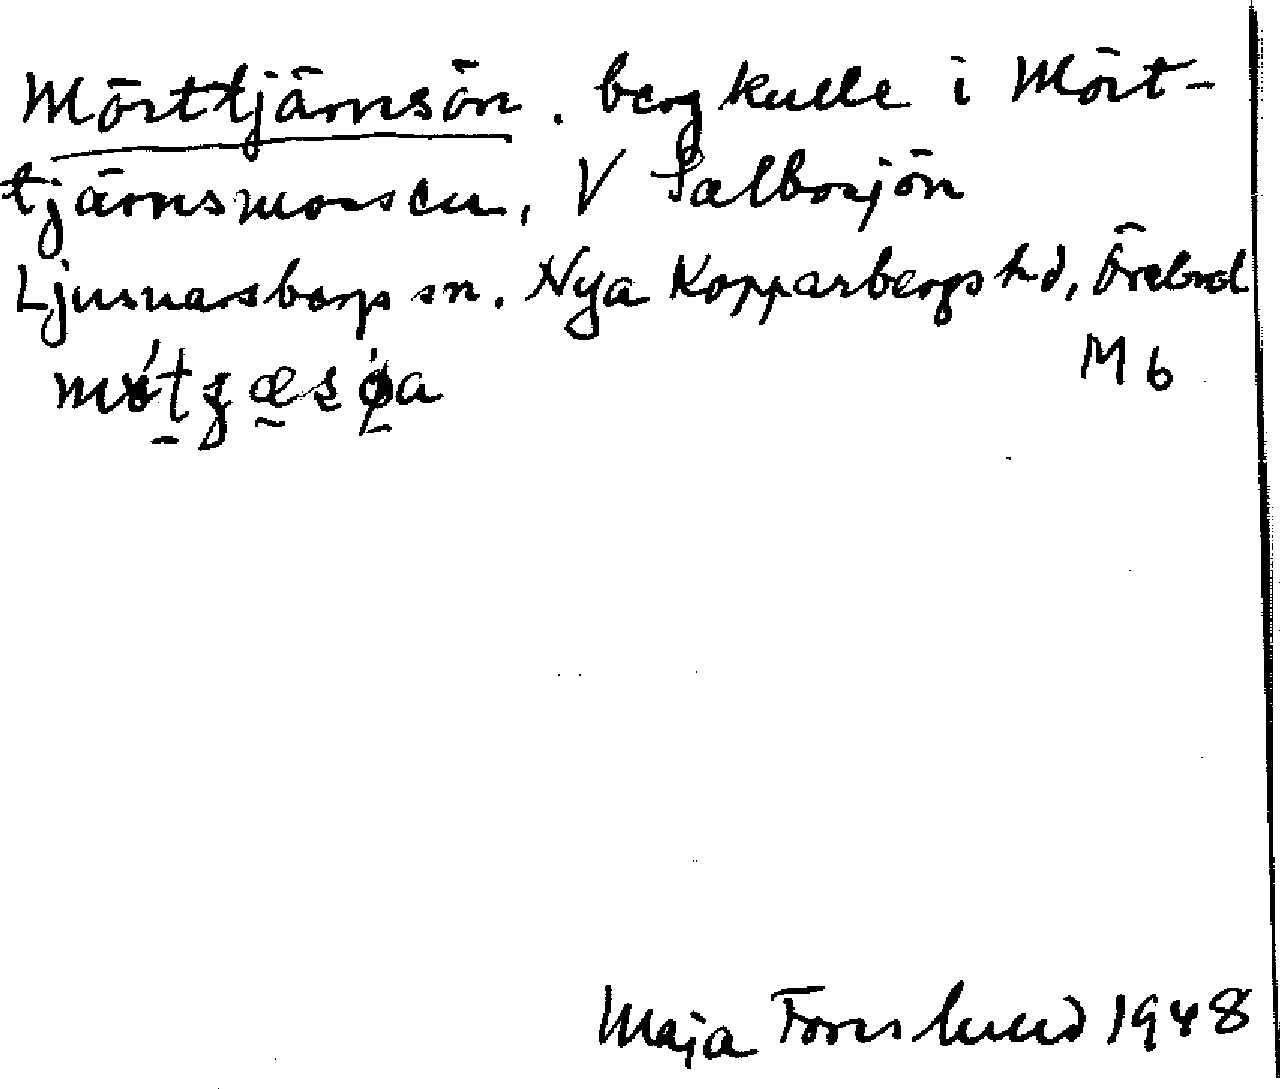 Mörttjärnsön. bergkulle i Mört-
tjärnsmossen, V Salbosjön
Ljusnarsbergs sn. Nya Kopparbergs hd, Örebro l
M 6
Maja Forslund 1948